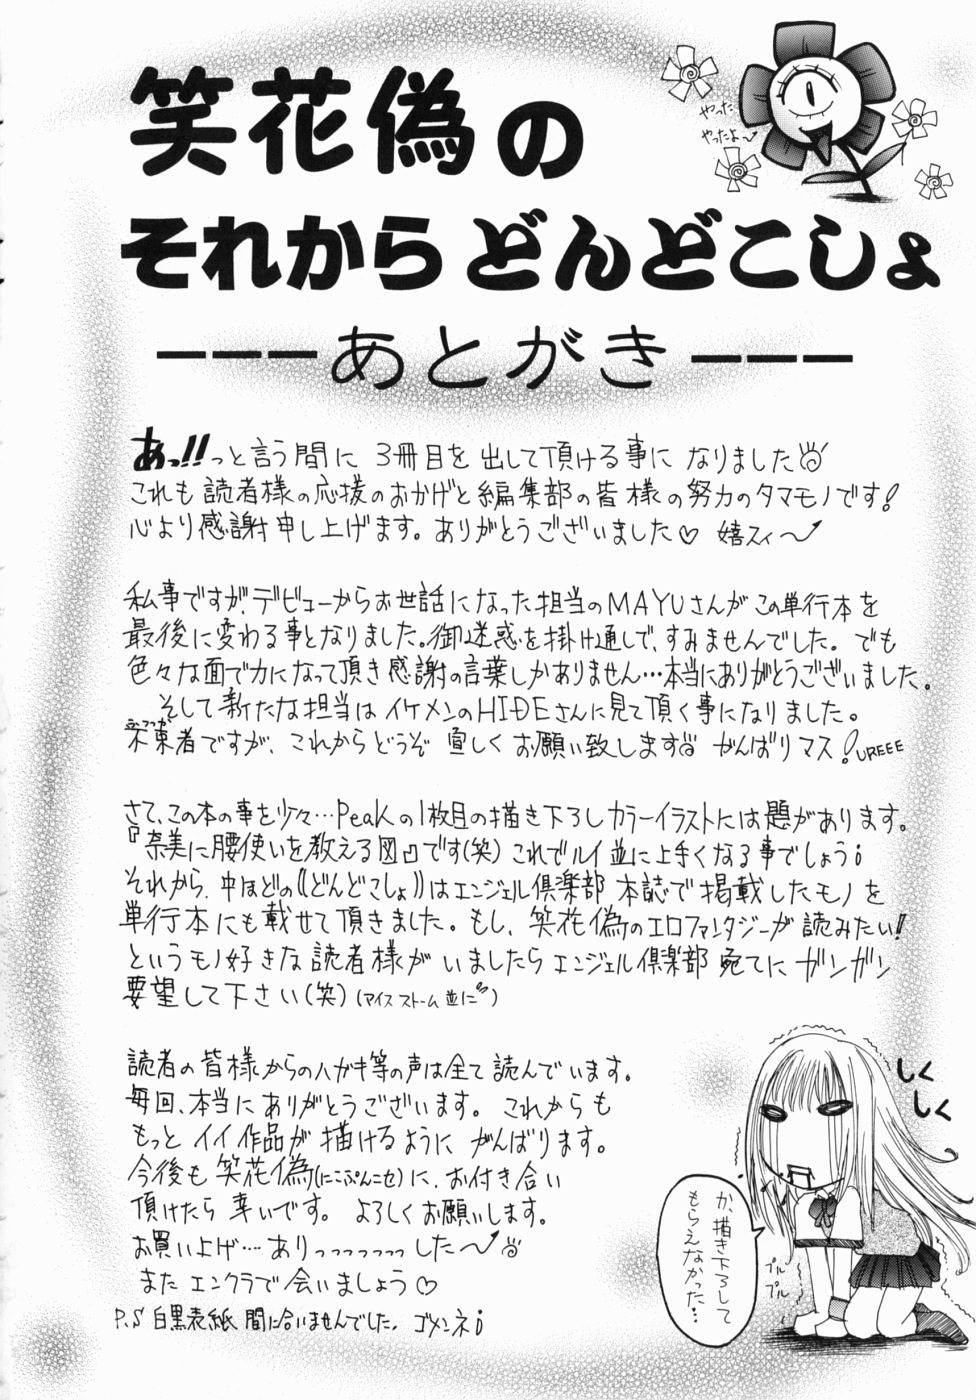 笑花偽の
やった
やったよ〜
それからどんどこしょ
---あとがき---
あっ!!っと言う間に 3冊目を出して頂ける事になりました
これも読者様の応援のおかげと編集部の皆様の努力のタマモノです!
心より感謝申し上げます。ありがとうございました♡ 嬉スィ〜
私事ですが、デビューからお世話になった担当のMAYUさんがこの単行本を
最後に変わる事となりました。御迷惑を掛け通しで、すみませんでした。でも
色々な面で力になって頂き感謝の言葉しかありません…本当にありがとうございました。
そして新たな担当はイケメンのHIDEさんに見て頂く事になりました。
不束者ですが、これからどうぞ宜しくお願い致します がんばりマス! UREEE
さて、この本の事を少々…Peakの1枚目の描き下ろしカラーイラストには題があります。
『奈美に腰使いを教える図』です(笑) これでルイ並に上手くなる事でしょう!
それから、中ほどの《どんどこしょ》はエンジェル倶楽部 本誌で掲載したモノを
単行本にも載せて頂きました。もし、笑花偽のエロファンタジーが読みたい!!
というモノ好きな読者様がいましたらエンジェル倶楽部宛てにガンガン
要望して下さい(笑) (マイス ストーム並に)
読者の皆様からのハガキ等の声は全て読んでいます。
毎回、本当にありがとうございます。これからも
もっとイイ作品が描けるようにがんばります。
今後も笑花偽(にこぷんニセ)に、お付き合い
頂けたら幸いです。よろしくお願いします。
お買い上げ…ありっっっっっっした〜
またエンクラで会いましょう♡
P.S 白黒表紙 間に合いませんでした。ゴメンネ!
しく
しく
か、描き下ろして
もらえなかった…
プル
プル